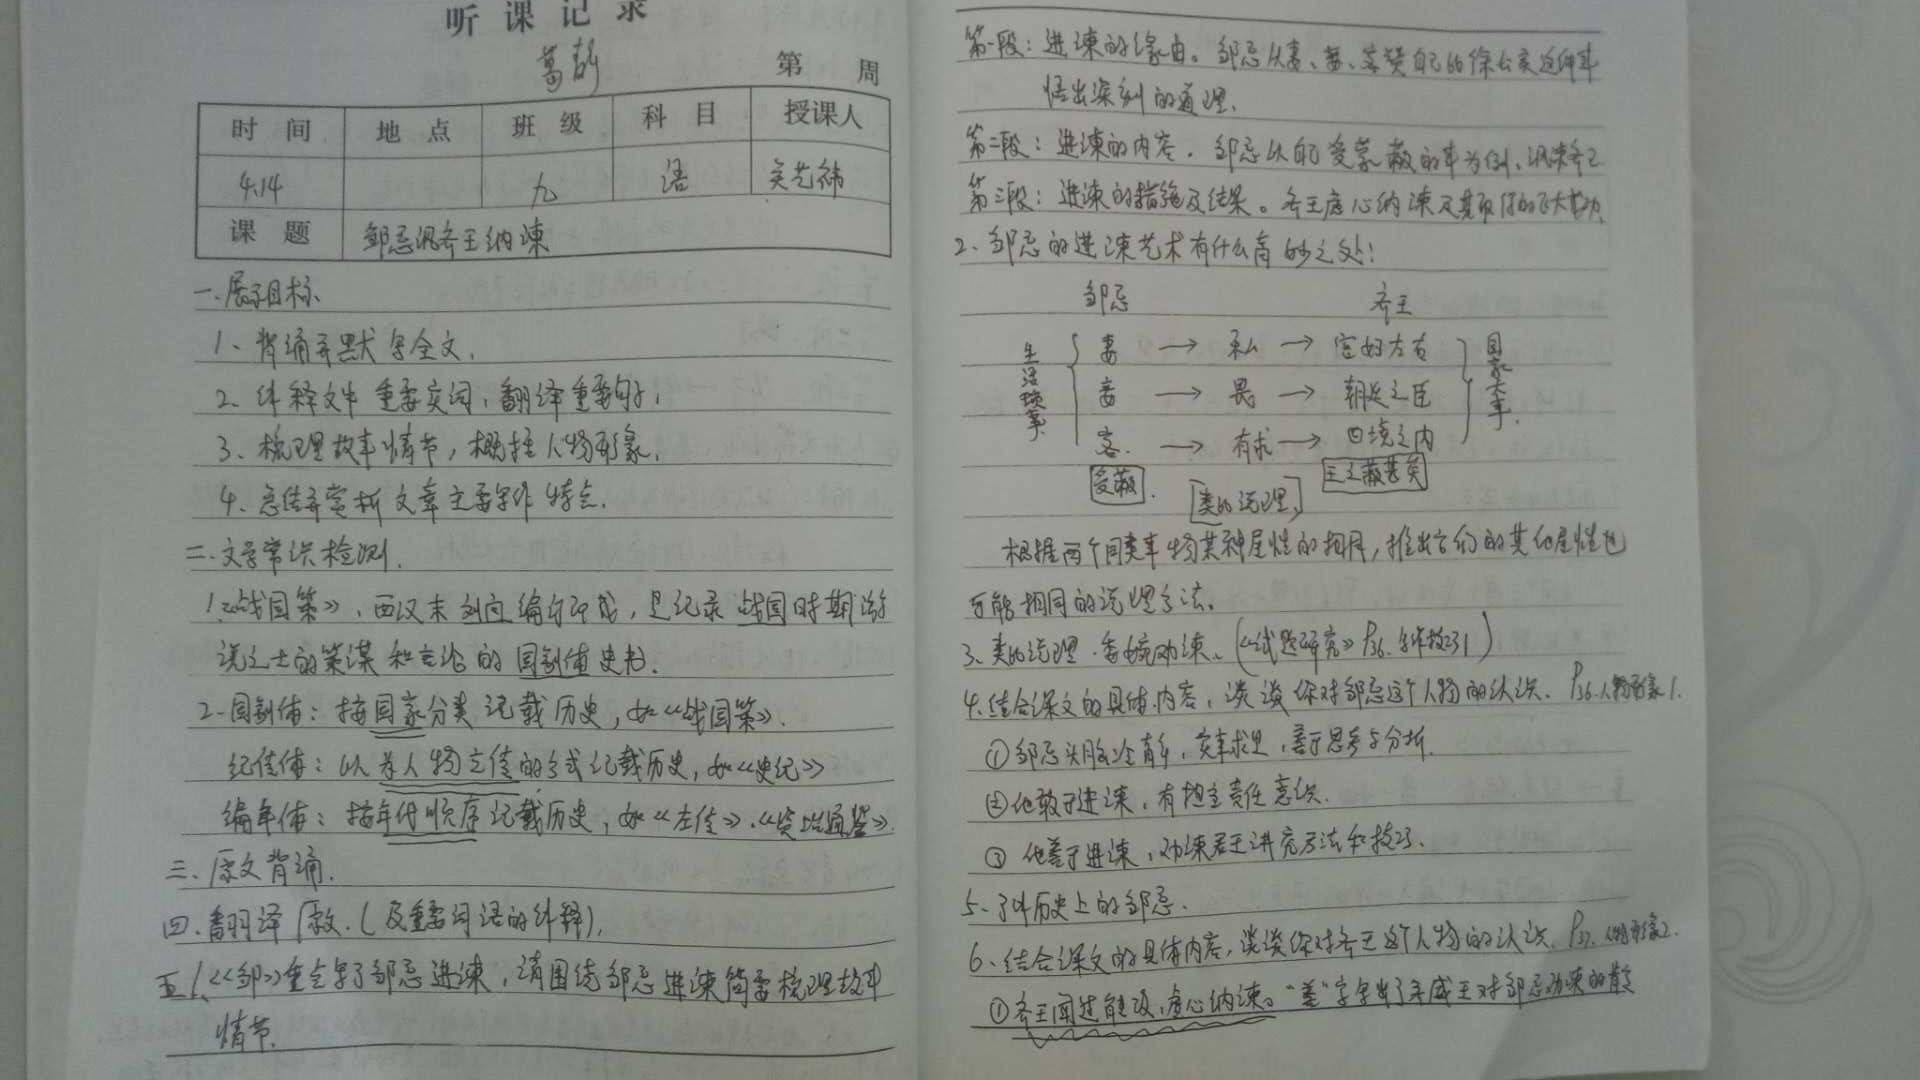 听课记录
葛彭
第 周
时间 地点 班级 科目 授课人
4.14 九 语 吴艺祎
课题 邹忌讽齐王纳谏
一.展示目标
1、背诵并默写全文.
2、解释文中重要实词,翻译重要句子.
3、梳理故事情节,概括人物形象.
4、总结并赏析文章主要写作特点.
二.文学常识检测.
1.《战国策》,西汉末刘向编订而成,是记录战国时期游
说之士的策谋和言论的国别体史书.
2.国别体:按国家分类记载历史,如《战国策》.
纪传体:以为人物立传的方式记载历史,如《史记》
编年体:按年代顺序记载历史,如《左传》.《资治通鉴》.
三.原文背诵.
四.翻译原文.(及重要词语的解释).
五.1、《邹》重点写了邹忌进谏,请围绕邹忌进谏简要梳理故事
情节.
第一段:进谏的缘由。邹忌从妻、妾、客赞自己比徐公美这件事
悟出深刻的道理.
第二段:进谏的内容.邹忌以自己受蒙蔽的事为例,讽谏齐王
第三段:进谏的措施及结果。齐王虚心纳谏及其取得的巨大成功
2、邹忌的进谏艺术有什么高妙之处?
邹忌 齐王
生活琐事
妻 → 私 → 宫妇左右
妾 → 畏 → 朝廷之臣
客 → 有求 → 四境之内
国家大事.
受蔽. [类比说理] 王之蔽甚矣
根据两个同类事物某种属性的相同,推出它们的其他属性也
可能相同的说理方法.
3、类比说理.委婉劝谏.(《试题研究》P36.写作技巧1)
4.结合课文的具体内容,谈谈你对邹忌这个人物的认识. P36.人物形象1.
①邹忌头脑冷静,实事求是,善于思考与分析.
②他敢于进谏,有担当责任意识.
③他善于进谏,劝谏君王讲究方法和技巧.
5、了解历史上的邹忌.
6、结合课文的具体内容,谈谈你对齐王这个人物的认识. P37.人物形象2.
①齐王闻过能改,虚心纳谏。“善”字写出了齐威王对邹忌劝谏的